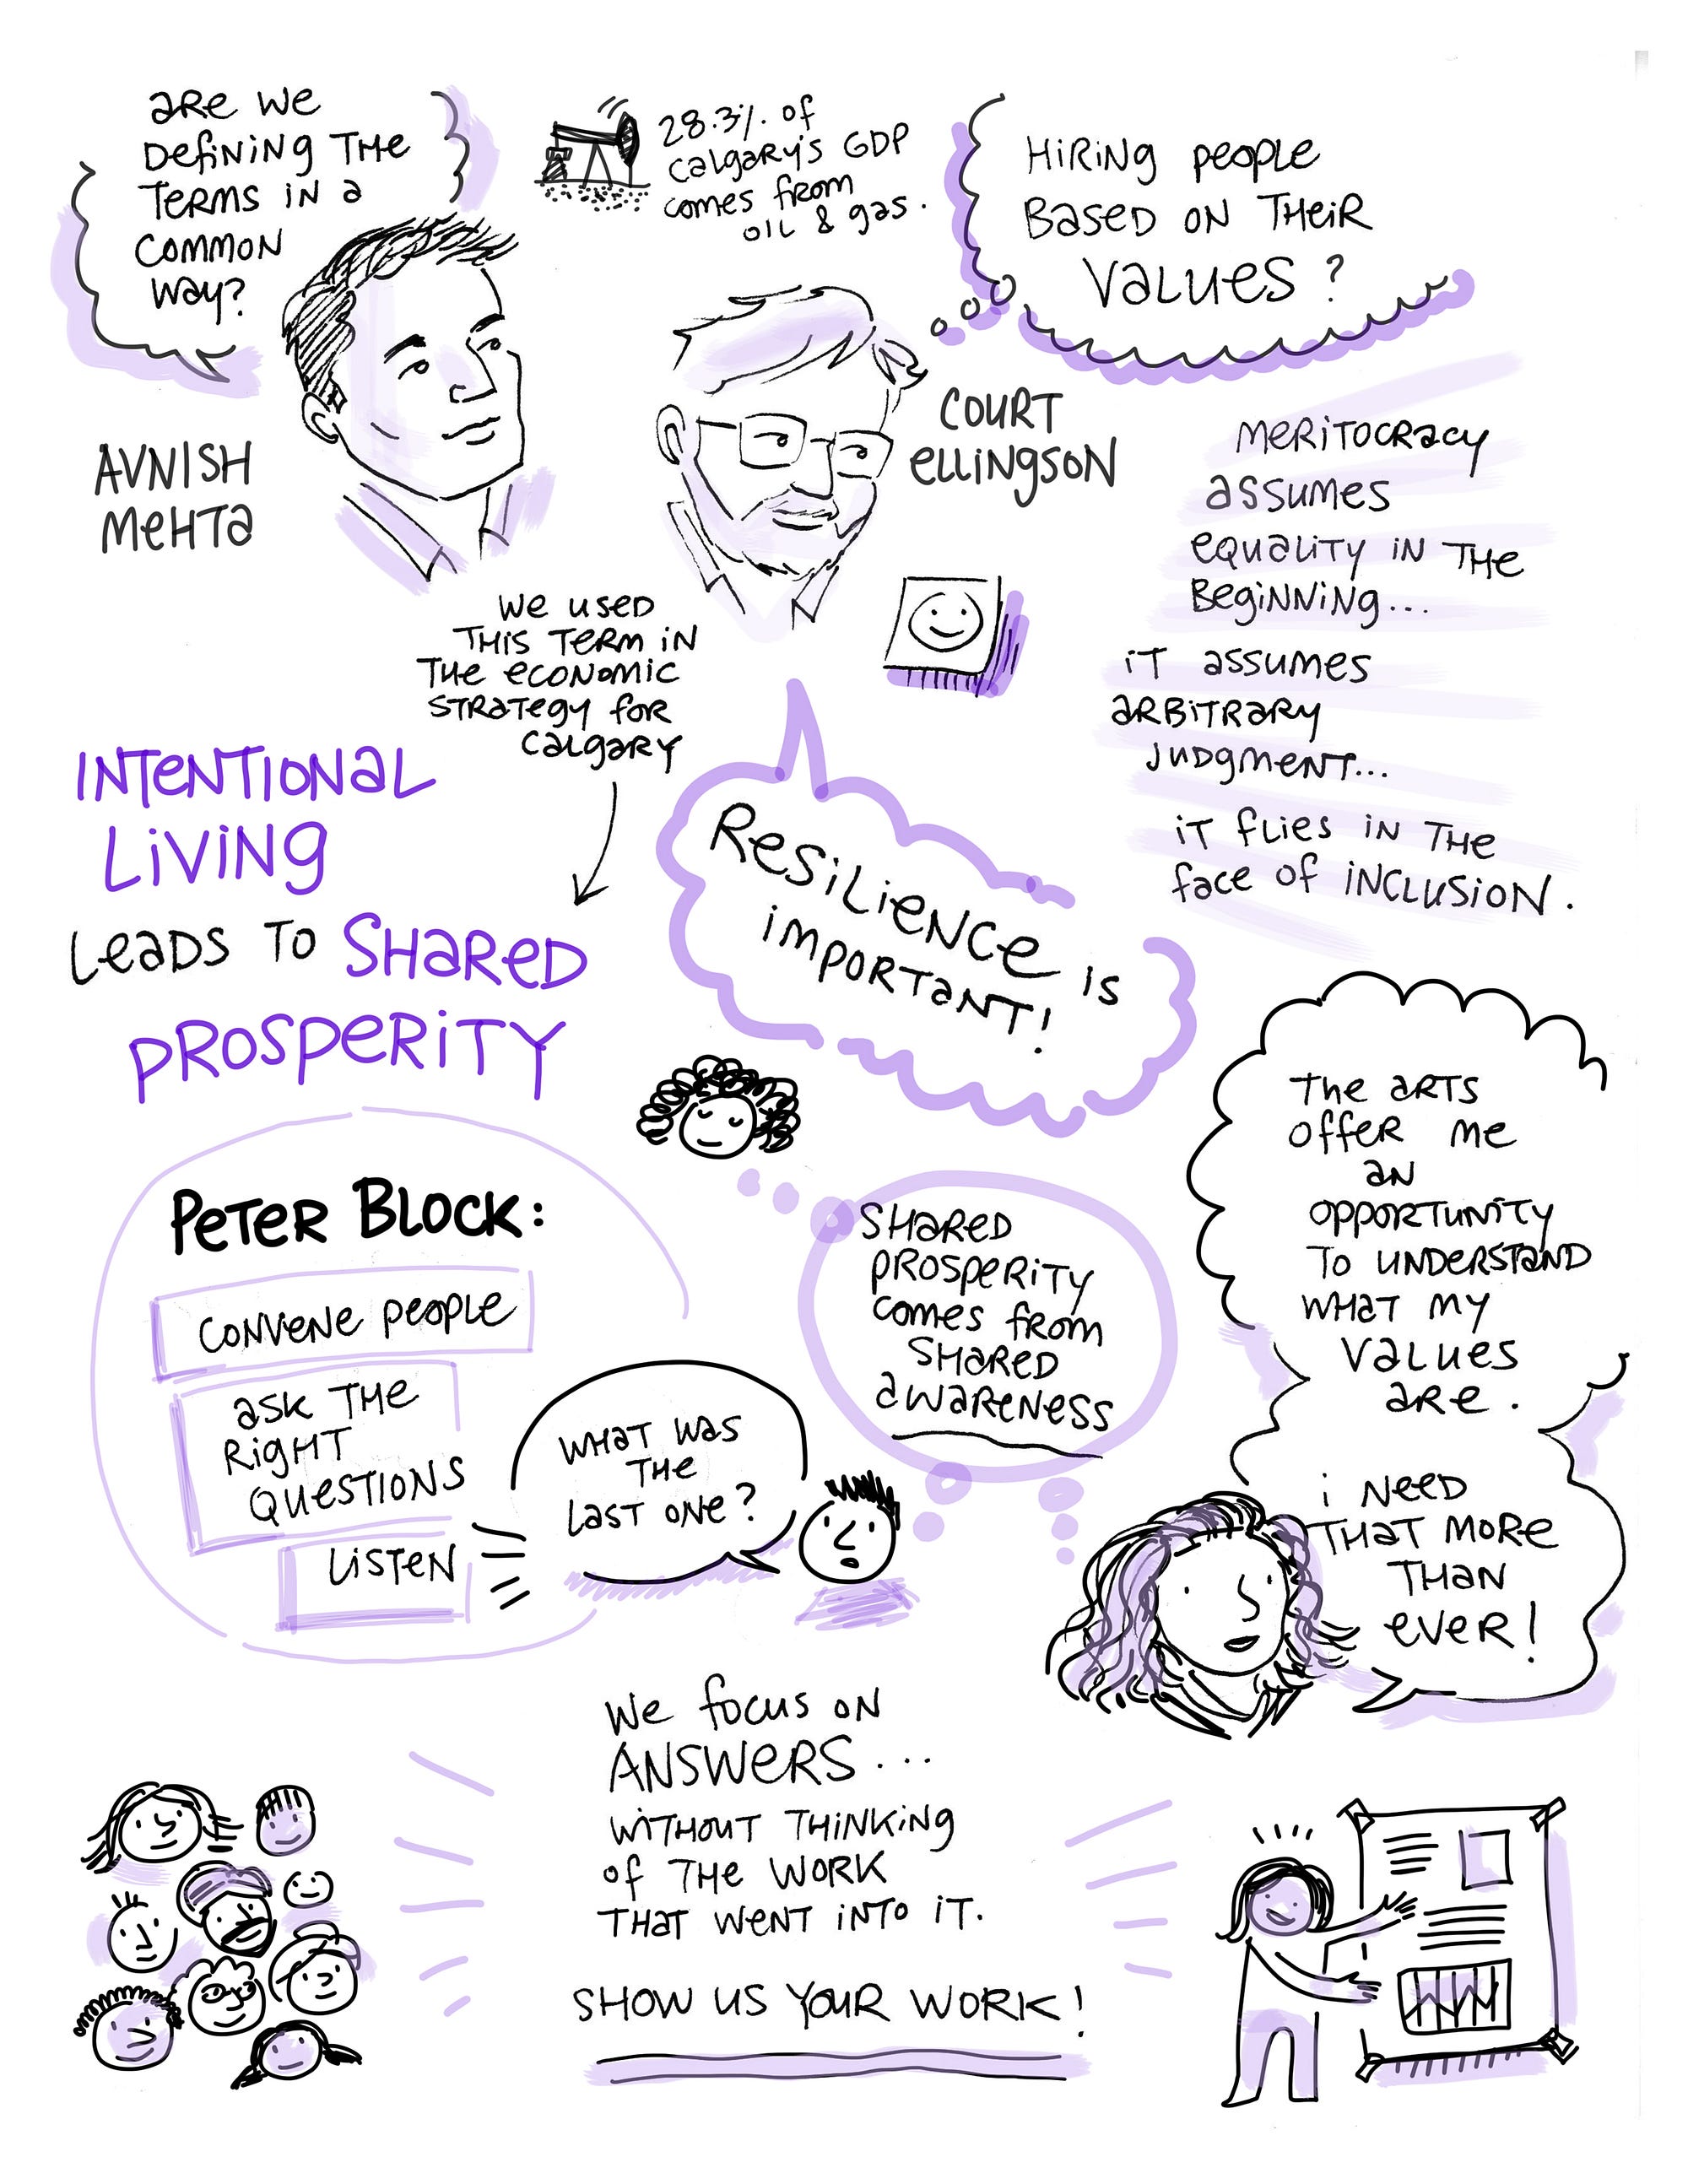 are we
Defining the
terms in a
common
way?
28.3% of
Calgary's GDP
comes from
oil & gas.
Hiring people
based on their
values?
Avnish
Mehta
Court
Ellingson
Meritocracy
assumes
equality in the
beginning...
it assumes
arbitrary
judgment...
it flies in the
face of inclusion.
We used
this term in
the economic
strategy for
Calgary
Intentional
Living
leads to Shared
Prosperity
Resilience is
important!
Peter Block:
convene people
ask the
right
questions
Listen
What was
the
last one?
Shared
prosperity
comes from
shared
awareness
The arts
offer me
an
opportunity
to understand
what my
values
are.
i need
that more
than
ever!
We focus on
answers...
without thinking
of the work
that went into it.
Show us your work!